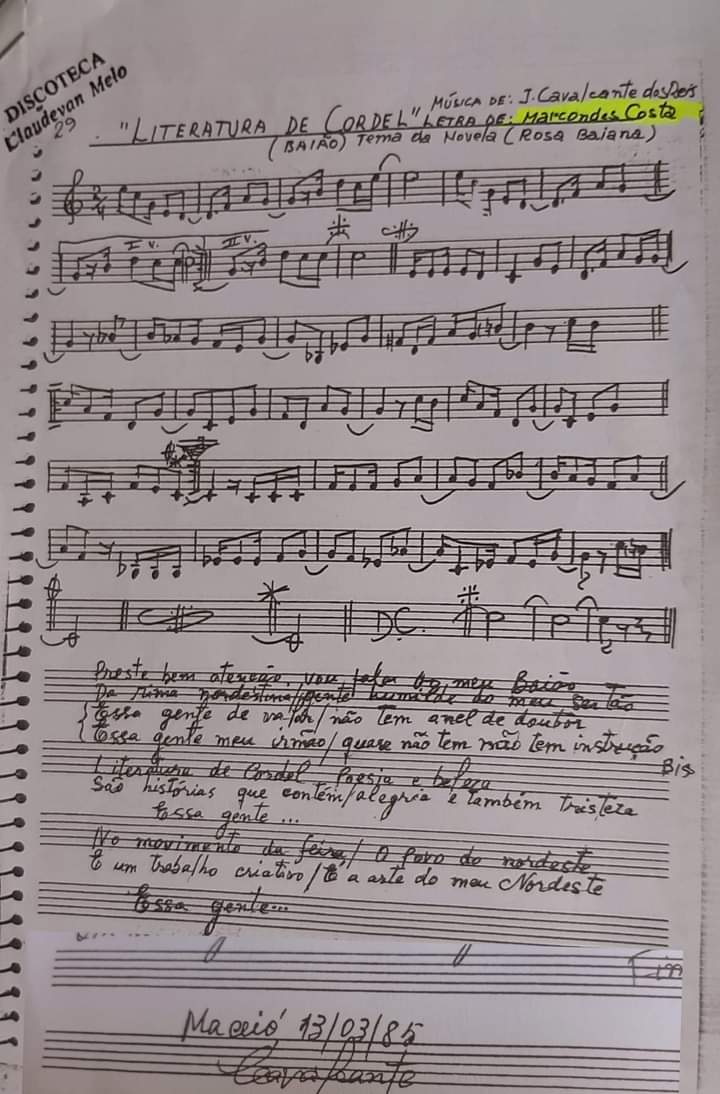 DISCOTECA
Claudevan Melo
29
"LITERATURA DE CORDEL" MÚSICA DE: J. Cavalcante dos Reis
LETRA DE: Marcondes Costa
(BAIÃO) Tema da Novela (Rosa Baiana)
I v. II v.
D.C.
Preste bem atenção, vou falar do meu Baião
Da rima nordestina/gente humilde do meu sertão
Essa gente de valor/não tem anel de doutor
Essa gente meu irmão/quase não tem não tem instrução
Bis
Literatura de Cordel Poesia e beleza
São histórias que contém/alegria e também tristeza
Essa gente...
No movimento da feira/O povo do nordeste
É um trabalho criativo/É a arte do meu Nordeste
Essa gente...
Fim
Maceió, 13/03/85
Cavalcante